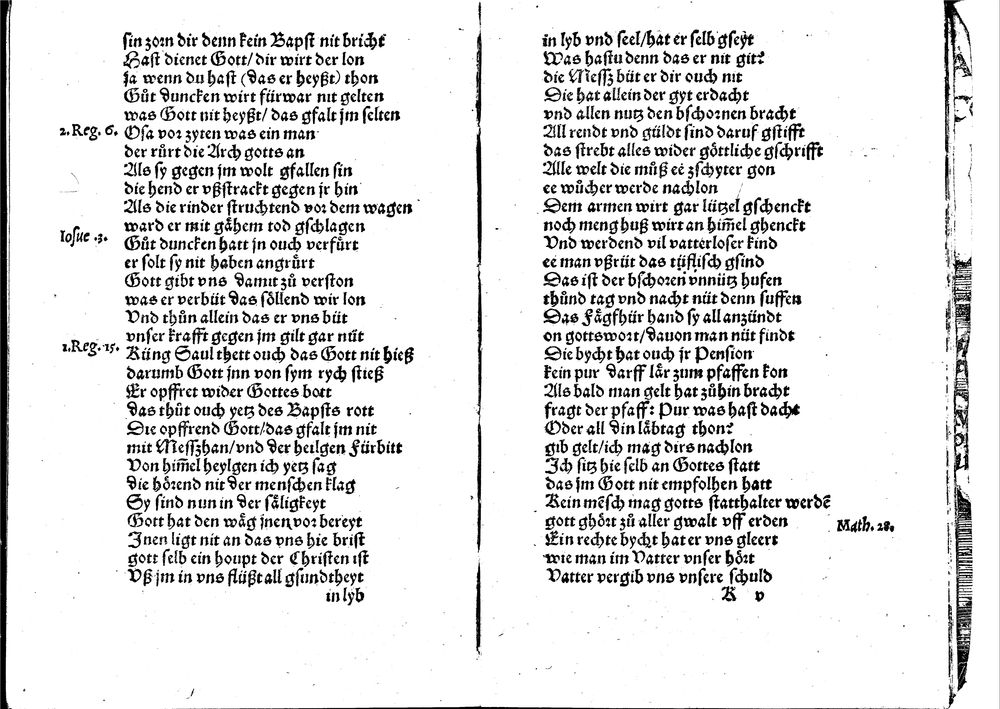 sin zorn dir denn kein Bapst nit bricht
Hast dienet Gott/ dir wirt der lon
ja wenn du hast (das er heyßt) thon
Gůt duncken wirt fürwar nit gelten
was Gott nit heyßt/ das gfalt jm selten
2. Reg. 6. Osa vor zyten was ein man
der růrt die Arch gotts an
Als sy gegen jm wolt gfallen sin
die hend er vßstrackt gegen jr hin
Als die rinder struchtend vor dem wagen
ward er mit gähem tod gschlagen
Iosue .3. Gůt duncken hatt jn ouch verfürt
er solt sy nit haben angrůrt
Gott gibt vns damit zů verston
was er verbüt das söllend wir lon
Vnd thůn allein das er vns büt
vnser krafft gegen jm gilt gar nüt
1. Reg. 15. Küng Saul thett ouch das Gott nit hieß
darumb Gott jnn von sym rych stieß
Er opffret wider Gottes bott
das thůt ouch yetz des Bapsts rott
Die opffrend Gott/das gfalt jm nit
mit Messzhan/vnd der heilgen Fürbitt
Von him̄el heylgen ich yetz sag
die hörend nit der menschen klag
Sy sind nun in der säligkeyt
Gott hat den wäg jnen vor bereyt
Inen ligt nit an das vns hie brist
gott selb ein houpt der Christen ist
Vß jm in vns flüßt all gsundtheyt
in lyb
in lyb vnd seel/hat er selb gseyt
Was hastu denn das er nit git?
die Messz büt er dir ouch nit
Die hat allein der gyt erdacht
vnd allen nutz den bschornen bracht
All rendt vnd güldt sind daruf gstifft
das strebt alles wider göttliche gschrifft
Alle welt die můß ee zschyter gon
ee wůcher werde nachlon
Dem armen wirt gar lützel gschenckt
noch meng huß wirt an him̄el ghenckt
Vnd werdend vil vatterloser kind
ee man vßrüt das tüflisch gsind
Das ist der bschoren vnnütz hufen
thůnd tag vnd nacht nüt denn suffen
Das Fägfhür hand sy all anzündt
on gottswort/dauon man nüt findt
Die bycht hat ouch jr Pension
kein pur darff lär zum pfaffen kon
Als bald man gelt hat zůhin bracht
fragt der pfaff: Pur was hast dacht
Oder all din läbtag thon?
gib gelt/ich mag dirs nachlon
Ich sitz hie selb an Gottes statt
das jm Gott nit empfolhen hatt
Kein mēsch mag gotts statthalter werdē
gott ghört zů aller gwalt vff erden Math. 28.
Ein rechte bycht hat er vns gleert
wie man im Vatter vnser hört
Vatter vergib vns vnsere schuld
K v